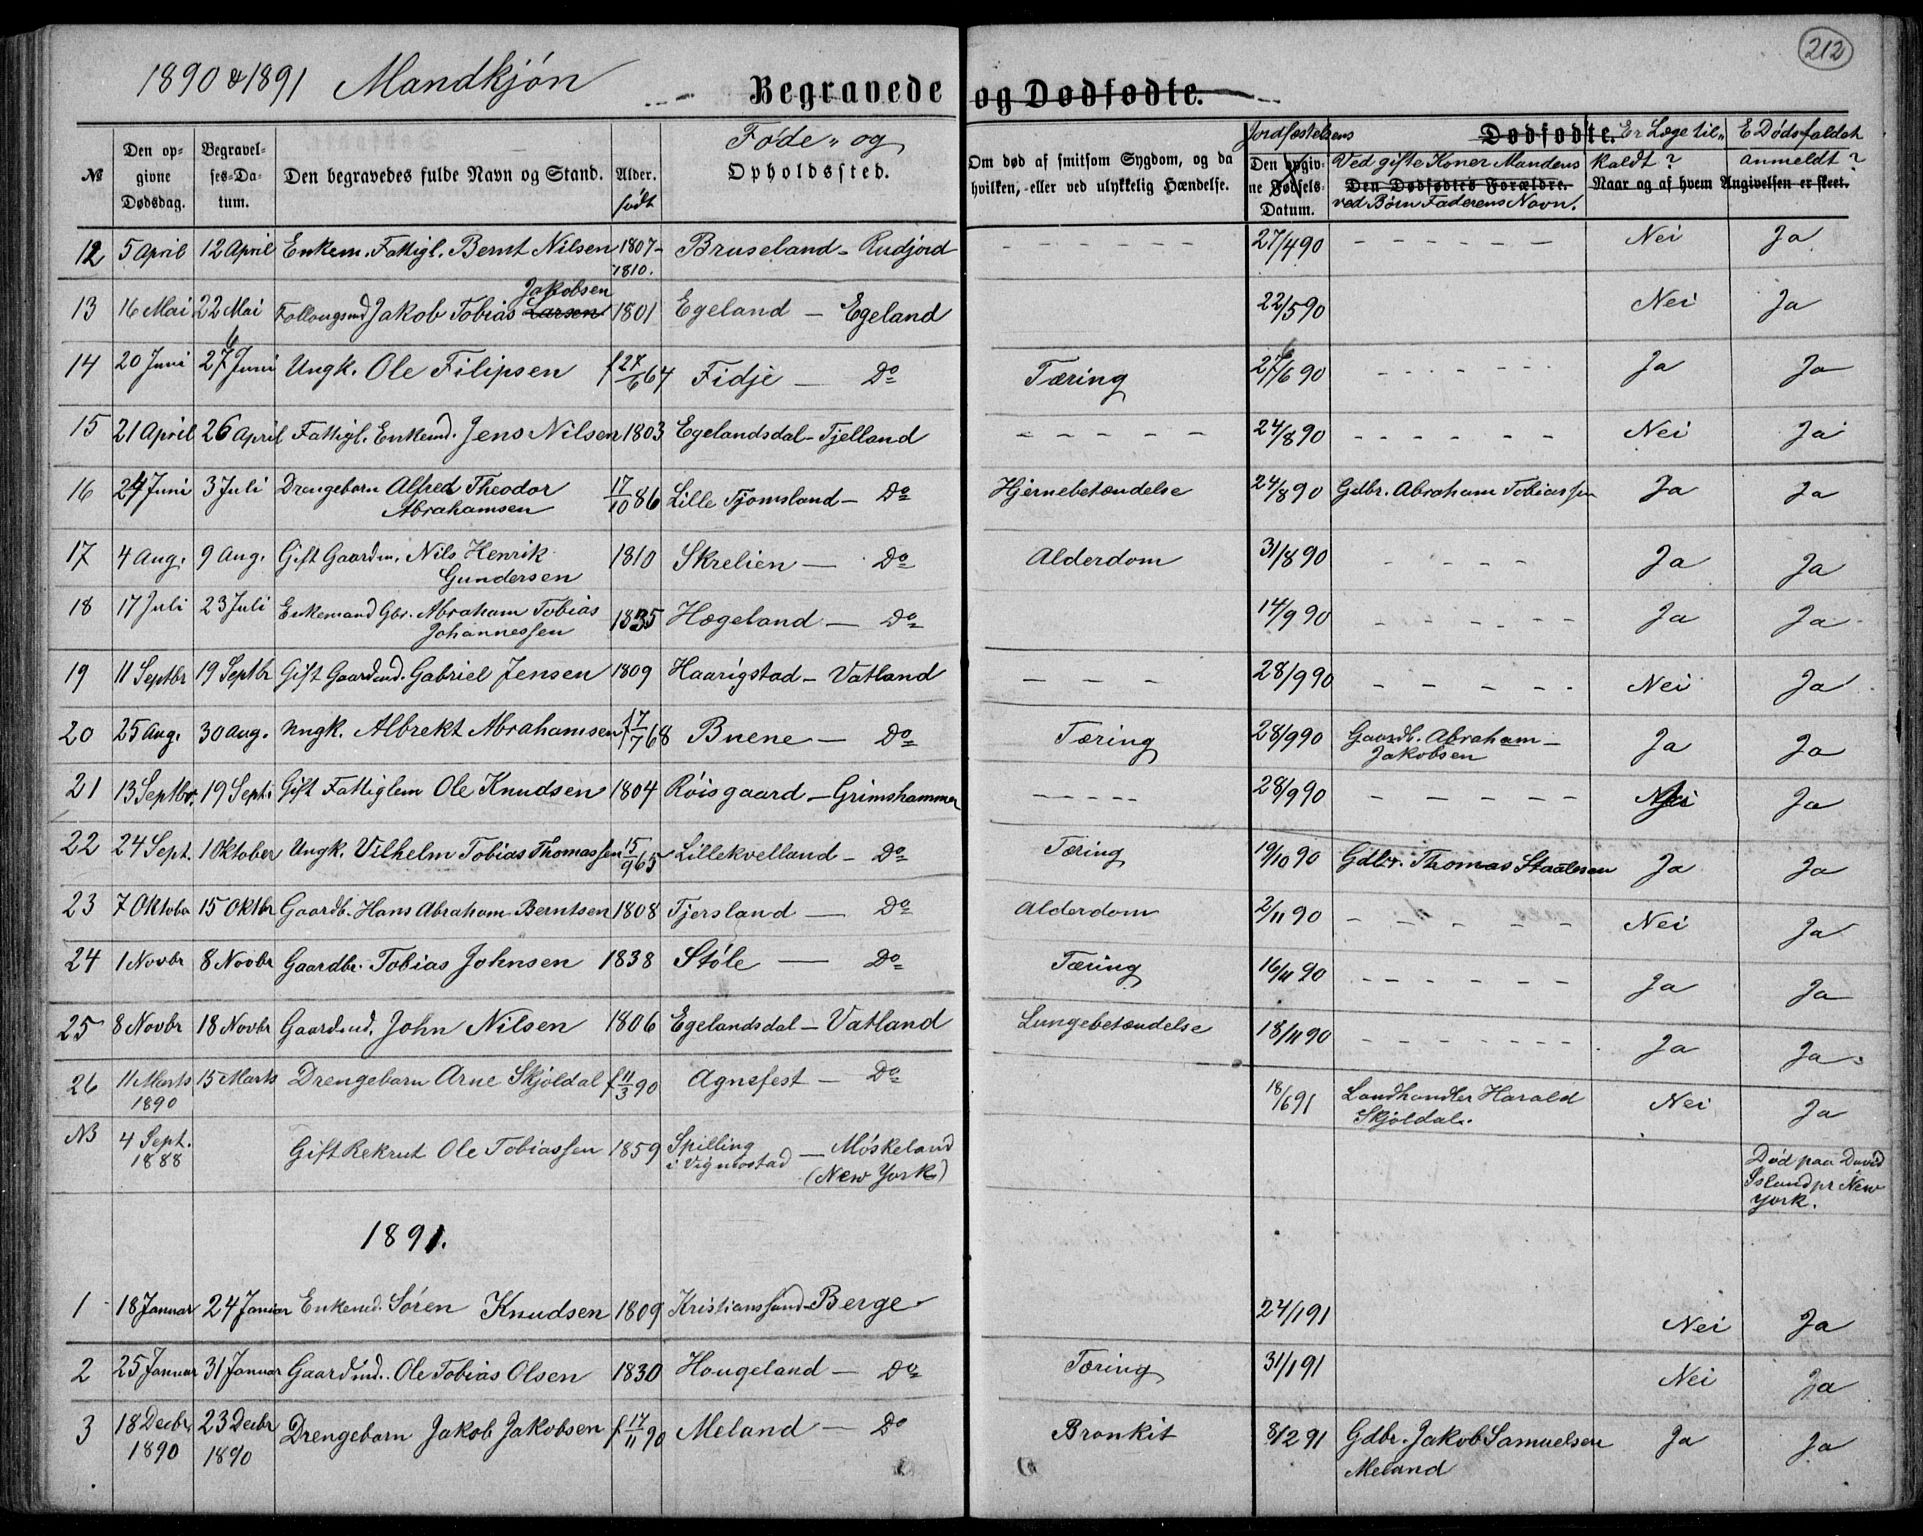 212
1890 & 1891 Mandkjón
Begravede og Dødfødte.
№ | Den opgivne Dødsdag. | Begravelses-Datum. | Den begravedes fulde Navn og Stand. | Alder. født | Føde- og Opholdssted. | Om død af smitsom Sygdom, og da hvilken, -eller ved ulykkelig Hændelse. | Jordfæstelsens Den opgivne Fødsels-Datum. | Dødfødte. Ved gifte Koner Mandens Den Dødfødtes Forældre. ved Børn Faderens Navn. | Er Læge tilkaldt? Naar og af hvem | E Dødsfaldet anmeldt? Angivelsen er skeet.
12 | 5 April | 12 April | Enkem. Fattigl. Bernt Nilsen | 1807- 1810. | Bruseland - Rudjord | – – – – – – | 27/4 90 | – – – – – – | Nei | Ja
13 | 16 Mai | 22 Mai | Follougsmd Jakob Tobias Larsen Jakobsen | 1801 | Egeland — Egeland | | 22/5 90 | | Nei | Ja
14 | 20 Juni | 27 6 Juni | Ungk. Ole Filipsen | f 27/6 64 | Fidje — Do | Tæring | 27 6/6 90 | - - - - - - - | Ja | Ja
15 | 21 April | 26 April | Fattigl. Enkemd. Jens Nilsen | 1803 | Egelandsdal - Tjelland | – – – – – | 24/8 90 | – – – – – – | Nei | Ja
16 | 24 Juni | 3 Juli | Drengebarn Alfred Theodor Abrahamsen | 17/10 86 | Lille Tjomsland - Do | Hjernebetændelse | 24/8 90 | Gdbr. Abraham Tobiassen | Ja | Ja
17 | 4 Aug. | 9 Aug. | Gift Gaardm. Nils Henrik Gundersen | 1810 | Skrelien — Do | Alderdom | 31/8 90 | - - - - | Ja | Ja
18 | 17 Juli | 23 Juli | Enkemand Gbr. Abraham Tobias Johannessen | 1835 | Hægeland — Do | | 14/9 90 | – – – – – – | Ja | Ja
19 | 11 Septbr | 19 Septbr | Gift Gaardmd. Gabriel Jensen | 1809 | Haarigstad - Vatland | – – – | 28/9 90 | – – – – – | Nei | Ja
20 | 25 Aug. | 30 Aug. | Ungk. Albrekt Abrahamsen | f 17/7 68 | Buene — Do | Tæring | 28/9 90 | Gaardb. Abraham Jakobsen | Ja | Ja
21 | 13 Septbr. | 19 Sept. | Gift Fattiglem Ole Knudsen | 1804 | Róisgaard - Grimshammer | – – – – – | 28/9 90 | – – – – – | Nei | Ja
22 | 24 Sept. | 1 Oktober | Ungk. Vilhelm Tobias Thomassen | 15/9 65 | Lillekvelland - Do | Tæring | 19/10 90 | Gdbr. Thomas Staalesen | Ja | Ja
23 | 7 Oktober | 15 Oktbr | Gaardb. Hans Abraham Berntsen | 1808 | Tjersland — Do | Alderdom | 2/11 90 | – – – – – | Nei | Ja
24 | 1 Novbr | 8 Novbr | Gaardbr. Tobias Johnsen | 1838 | Stóle — Do | Tæring | 16/11 90 | – – – – – – | Ja | Ja
25 | 8 Novbr | 18 Novbr | Gaardmd. John Nilsen | 1806 | Egelandsdal - Vatland | Lungebetændelse | 18/11 90 | – – – – – – – | Ja | Ja
26 | 11 Marts 1890 | 15 Marts | Drengebarn Arne Skjóldal | f 11/3 90 | Agnefest — Do | | 18/6 91 | Landhandler Harald Skjóldal. | Nei | Ja
NB | 4 Sept. 1888 | | Gift Rekrut Ole Tobiassen | 1859 | Spilling i Vigmostad — Móskeland (New York) | | | | | Død paa David Island pr New York.
1891.
1 | 18 Januar | 24 Januar | Enkemd. Sóren Knudsen | 1809 | Kristianssand - Berge | | 24/1 91 | | Nei | Ja
2 | 25 Januar | 31 Januar | Gaardmd. Ole Tobias Olsen | 1830 | Hougeland — Do | Tæring | 31/1 91 | | Nei | Ja
3 | 18 Decbr. 1890 | 23 Decbr 1890 | Drengebarn Jakob Jakobsen | f 17/11 90 | Meland — Do | Bronkit | 8/2 91 | Gdbr. Jakob Samuelsen Meland | Ja | Ja